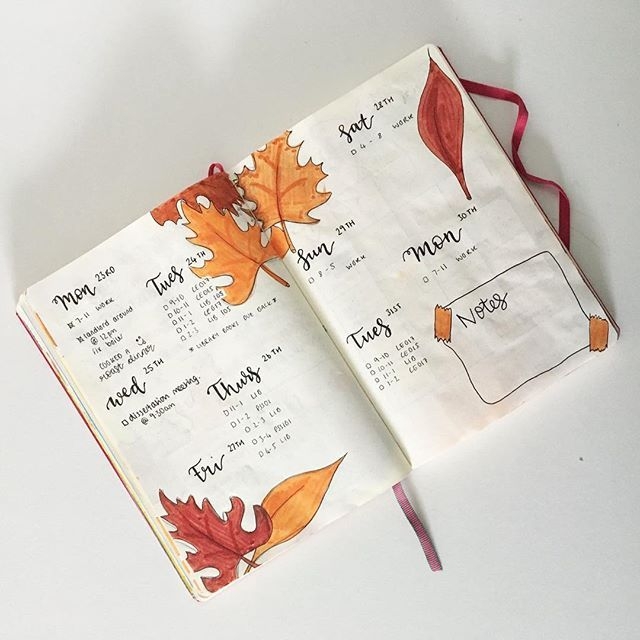 Mon 23RD
7-11 WORK
landlord around
@ 12pm
fix boiler
COOKED A
ROAST DINNER
Tues 24TH
9-10 CE017
10-11 CE015
11-1 LIB
1-2 CE017
2-3 LIB
* LIBRARY BOOKS DUE BACK *
Wed 25TH
dissertation meeting
@ 9:30am
Thurs 26TH
11-1 LIB
1-2
2-3 LIB
3-4
4-5 LIB
Fri 27TH
Sat 28TH
4-8 WORK
Sun 29TH
8-5 WORK
Mon 30TH
7-11 WORK
Tues 31ST
9-10 CE017
10-11 CE015
11-1 LIB
1-2 CE017
Notes